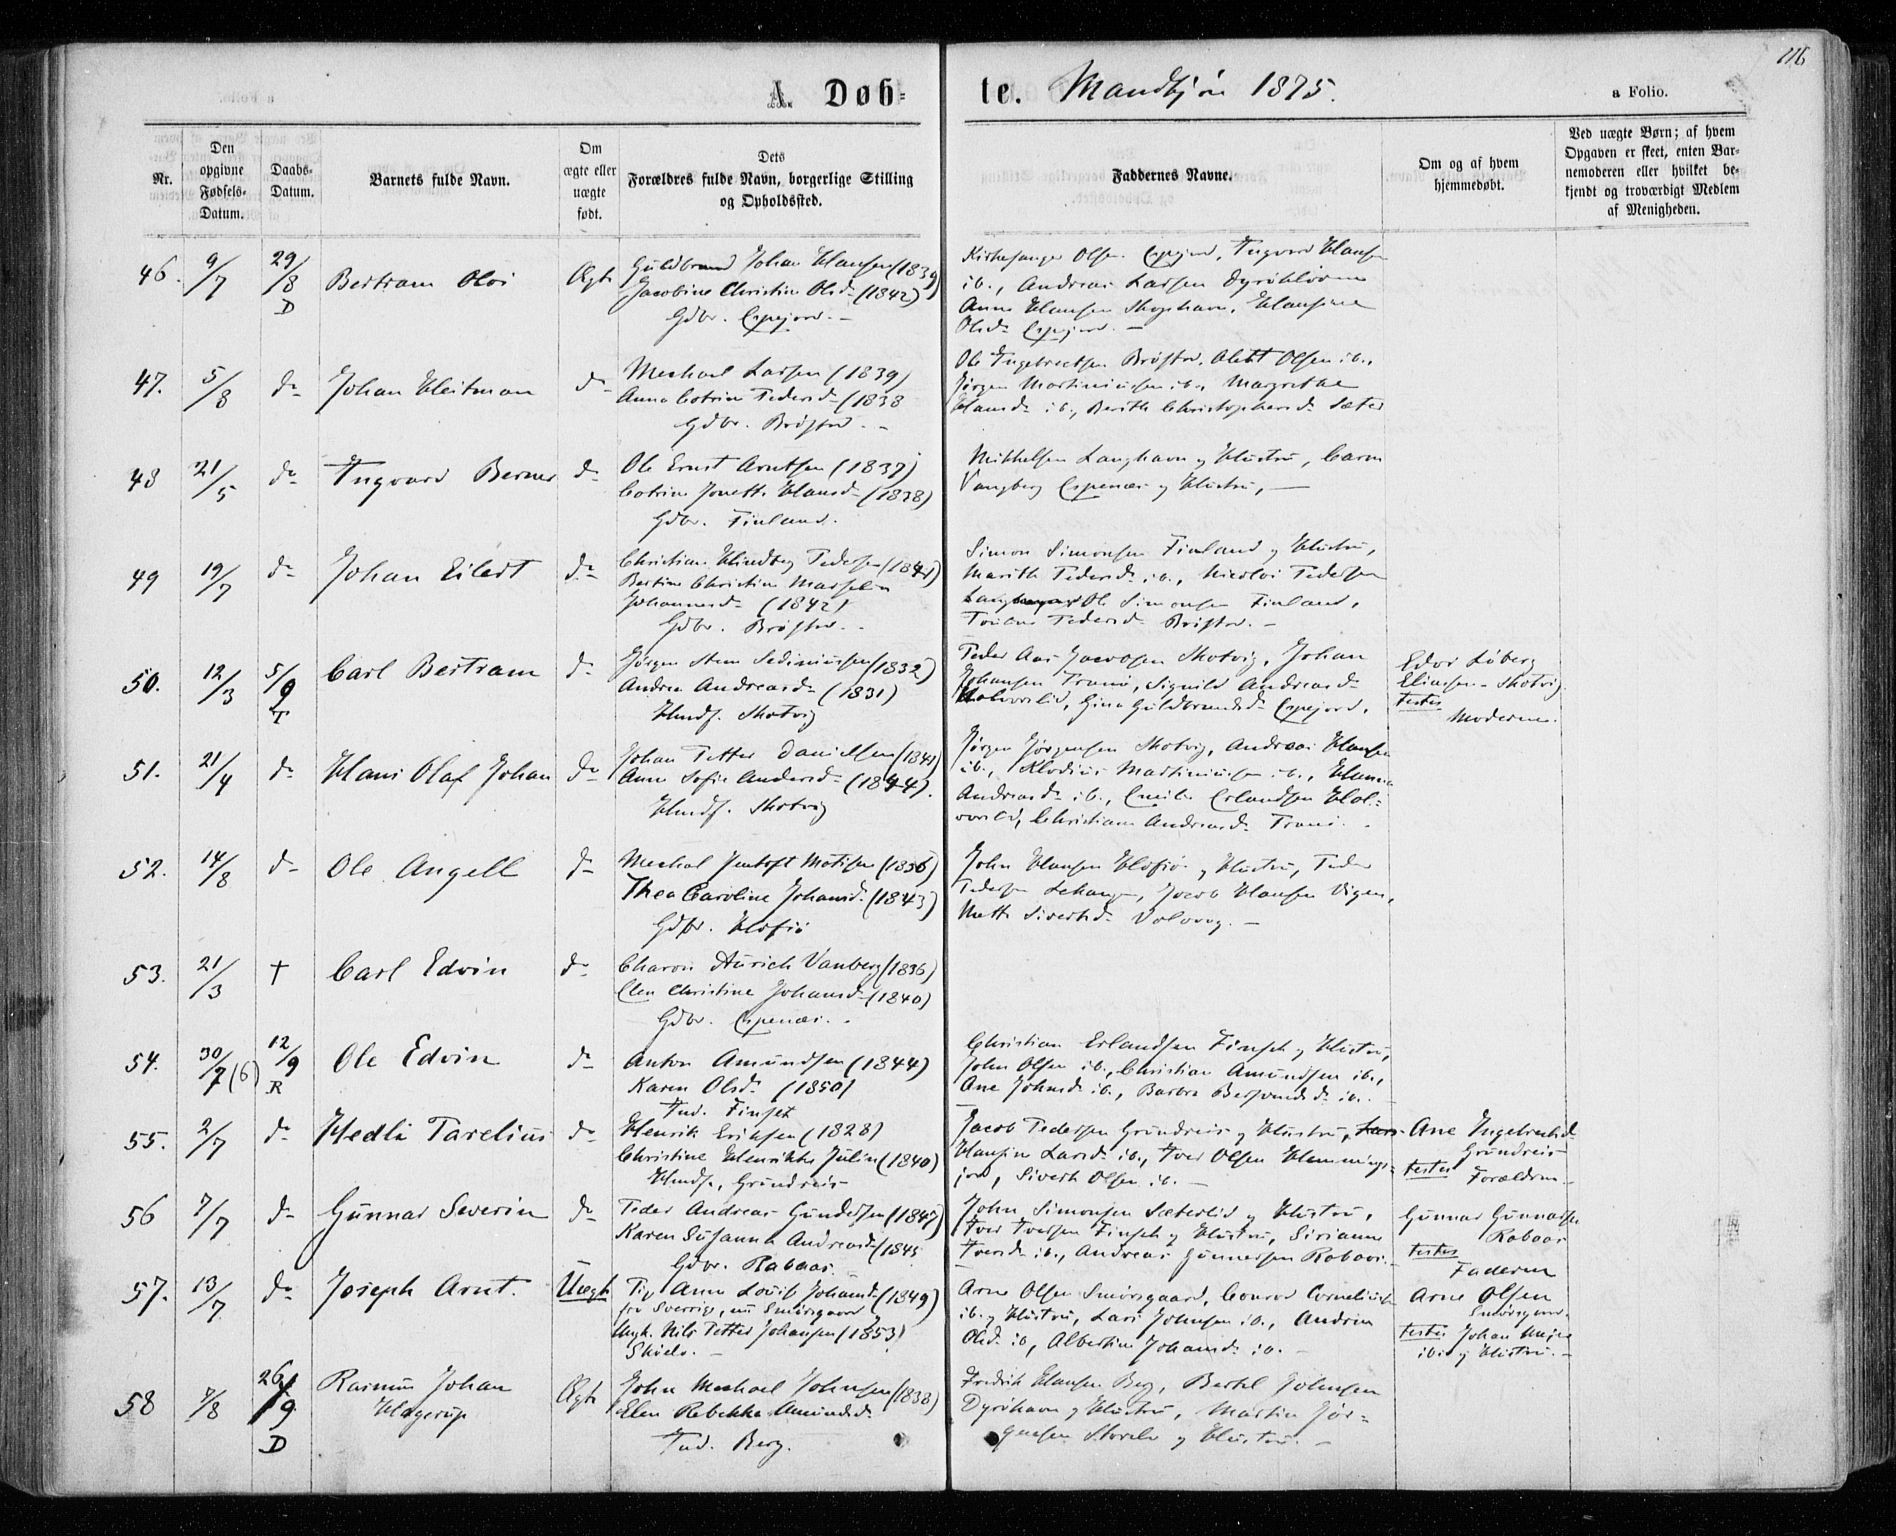 116
A. Døb-
te. Mandkjøn 1875.
a Folio.
Nr.
Den opgivne Fødsels-Datum.
Daabs-Datum.
Barnets fulde Navn.
Om ægte eller uægte født.
Dets Forældres fulde Navn, borgerlige Stilling og Opholdssted.
Faddernes Navne.
Om og af hvem hjemmedøbt.
Ved uægte Børn; af hvem Opgaven er skeet, enten Barnemoderen eller hvilket bekjendt og troværdigt Medlem af Menigheden.
46. 9/7 29/8 D Bertram Olai Ægte
Guldbrand Johan Hansen (1839)
Jacobine Christine Olsd. (1842)
Gdbr. Espejord. -
Kirkesanger Olsen Espejord, Ingvard Hansen
ib., Andreas Larsen Dyrøkløven
Anne Hansen Skogshavn, Hansine
Olsd. Espejord. -
47. 5/8 do Johan Heitman do
Mechael Larsen (1839)
Anna Cotrine Pedersd. (1838
Gdbr. Brøstad. -
Ole Ingebrectsen Brøstad, Olett Olsen ib.,
Jørgen Martiniussen ib., Margrethe
Hansd. ib., Berith Christophersd. Sæter
48 21/5 do Ingvard Berner do
Ole Ernst Arntsen (1837)
Cotrine Jonette Hansd. (1838)
Gdbr. Finland.
Mikkelsen Langhavn og Hustru,
Vangberg Espenæs og Hustru, -
49 19/7 do Johan Eilert do
Christian Hindberg Pedersen (1841)
Johannesd. (1842)
Gdbr. Brøstad. -
Simon Simonsen Finland og Hustru,
Marith Pedersd. ib., Nicolai Pedersen
Ole Simonsen Finland,
Pedersd. Brøstad. -
50. 12/3 5/9 T Carl Bertram do
Jørgen Sten Sediniussen (1832)
Andrea Andreasd. (1831)
Hmdf. Skotvig
Peder Aas Jacobsen Skotvig, Johan
Johansen Tranø, Signild Andreasd.
Holvorlid, Gina Guldbrandsd. Espejord.
Edvi Løberg
Eliassen - Skotvig
testes
Moderen.
51. 21/4 do Hans Olaf Johan do
Johan Petter Danielsen (1841)
Anne Sofie Andersd. (1844).
Hmdf. Skotvig
Jørgen Jørgensen Skotvig, Andreas Hansen
ib., Klodius Martiniussen ib., Hanna
Andreasd. ib., Emilie Erlandsen Hol-
vorlid, Christiane Andreasd. Tranø. -
52. 14/8 do Ole Angell do
Mechal Jentoft Motisen (1836)
Thea Caroline Johansd. (1843)
Gdbr. Hofsø
John Hansen Hofsø og Hustru, Peder
Pedersen Lekanger, Jacob Hansen Vigen,
Mette Sivertsd. Valvaag. -
53. 21/3 † Carl Edvin do
Charon Aurich Vanberg (1836)
Elen Christine Johansd. (1840)
Gdbr. Espenæs. -
54. 30/7 (6) 12/9 R Ole Edvin do
Anton Amundsen (1844)
Karen Olsd. (1850)
Ind. Finset
Christian Erlandsen Finseth og Hustru,
John Olsen ib., Christian Amundsen ib.,
Ane Johnsd. ib., Barbra Bersvendsd. ib. -
55. 2/7 do Hedli Parelius do
Henrik Eriksen (1828)
Christine Henrikke Julin (1840)
Hmdf., Grundreis
Jacob Pedersen Grundreis og Hustru, Lars
Hansine Larsd. ib., Iver Olsen Hemmings-
jord, Sivert Olsen ib. -
Ane Ingebrectsd.
Grundreis
testes
Forældrene
56 7/7 do Gunnar Severin do
Peder Andreas Gundersen (1847)
Karen Susanna Andreasd. (1845
Gdbr. Rabaas.
John Simonsen Sæterlid og Hustru,
Iver Iversen Finseth og Hustru, Sirianna
Iversd. ib., Andreas Gunnersen Rabaas. -
Gunnar Gunnarsen
Rabaas
testes
Faderen
57. 13/7 do Joseph Arnt. Uægte
Pig. Anne Lovise Johansd. (1849)
fra Sverrig, nu Smørsgaard
Ungk. Nils Petter Johansen (1853)
Skiels. -
Arne Olsen Smørsgaard, Conrad Corneliussen
ib. og Hustru, Lars Johnsen ib., Andrea
Olsd. ib., Albertine Johansd. ib. -
Arne Olsen
Smørsgaard.
testes Johan
ib. og Hustru. -
58 7/8 26/9 D Rasmus Johan Hagerup Ægte
John Mechael Johnsen (1838)
Elen Rebekka Amundsd.
Ind. Berg.
Fredrik Hansen Berg, Bertel Johnsen
Dyrøhavn og Hustru, Martin Jør-
gensen Storelv og Hustru. -